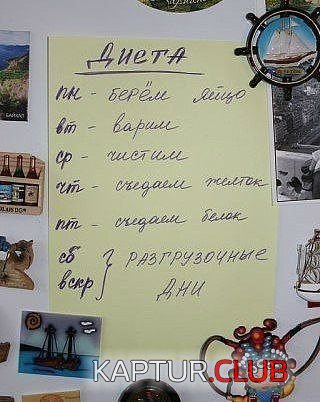 ДИЕТА
пн - берём яйцо
вт - варим
ср - чистим
чт - съедаем желток
пт - съедаем белок
сб } РАЗГРУЗОЧНЫЕ
вскр } ДНИ
БАЙКАЛ
KAPTUR.CLUB